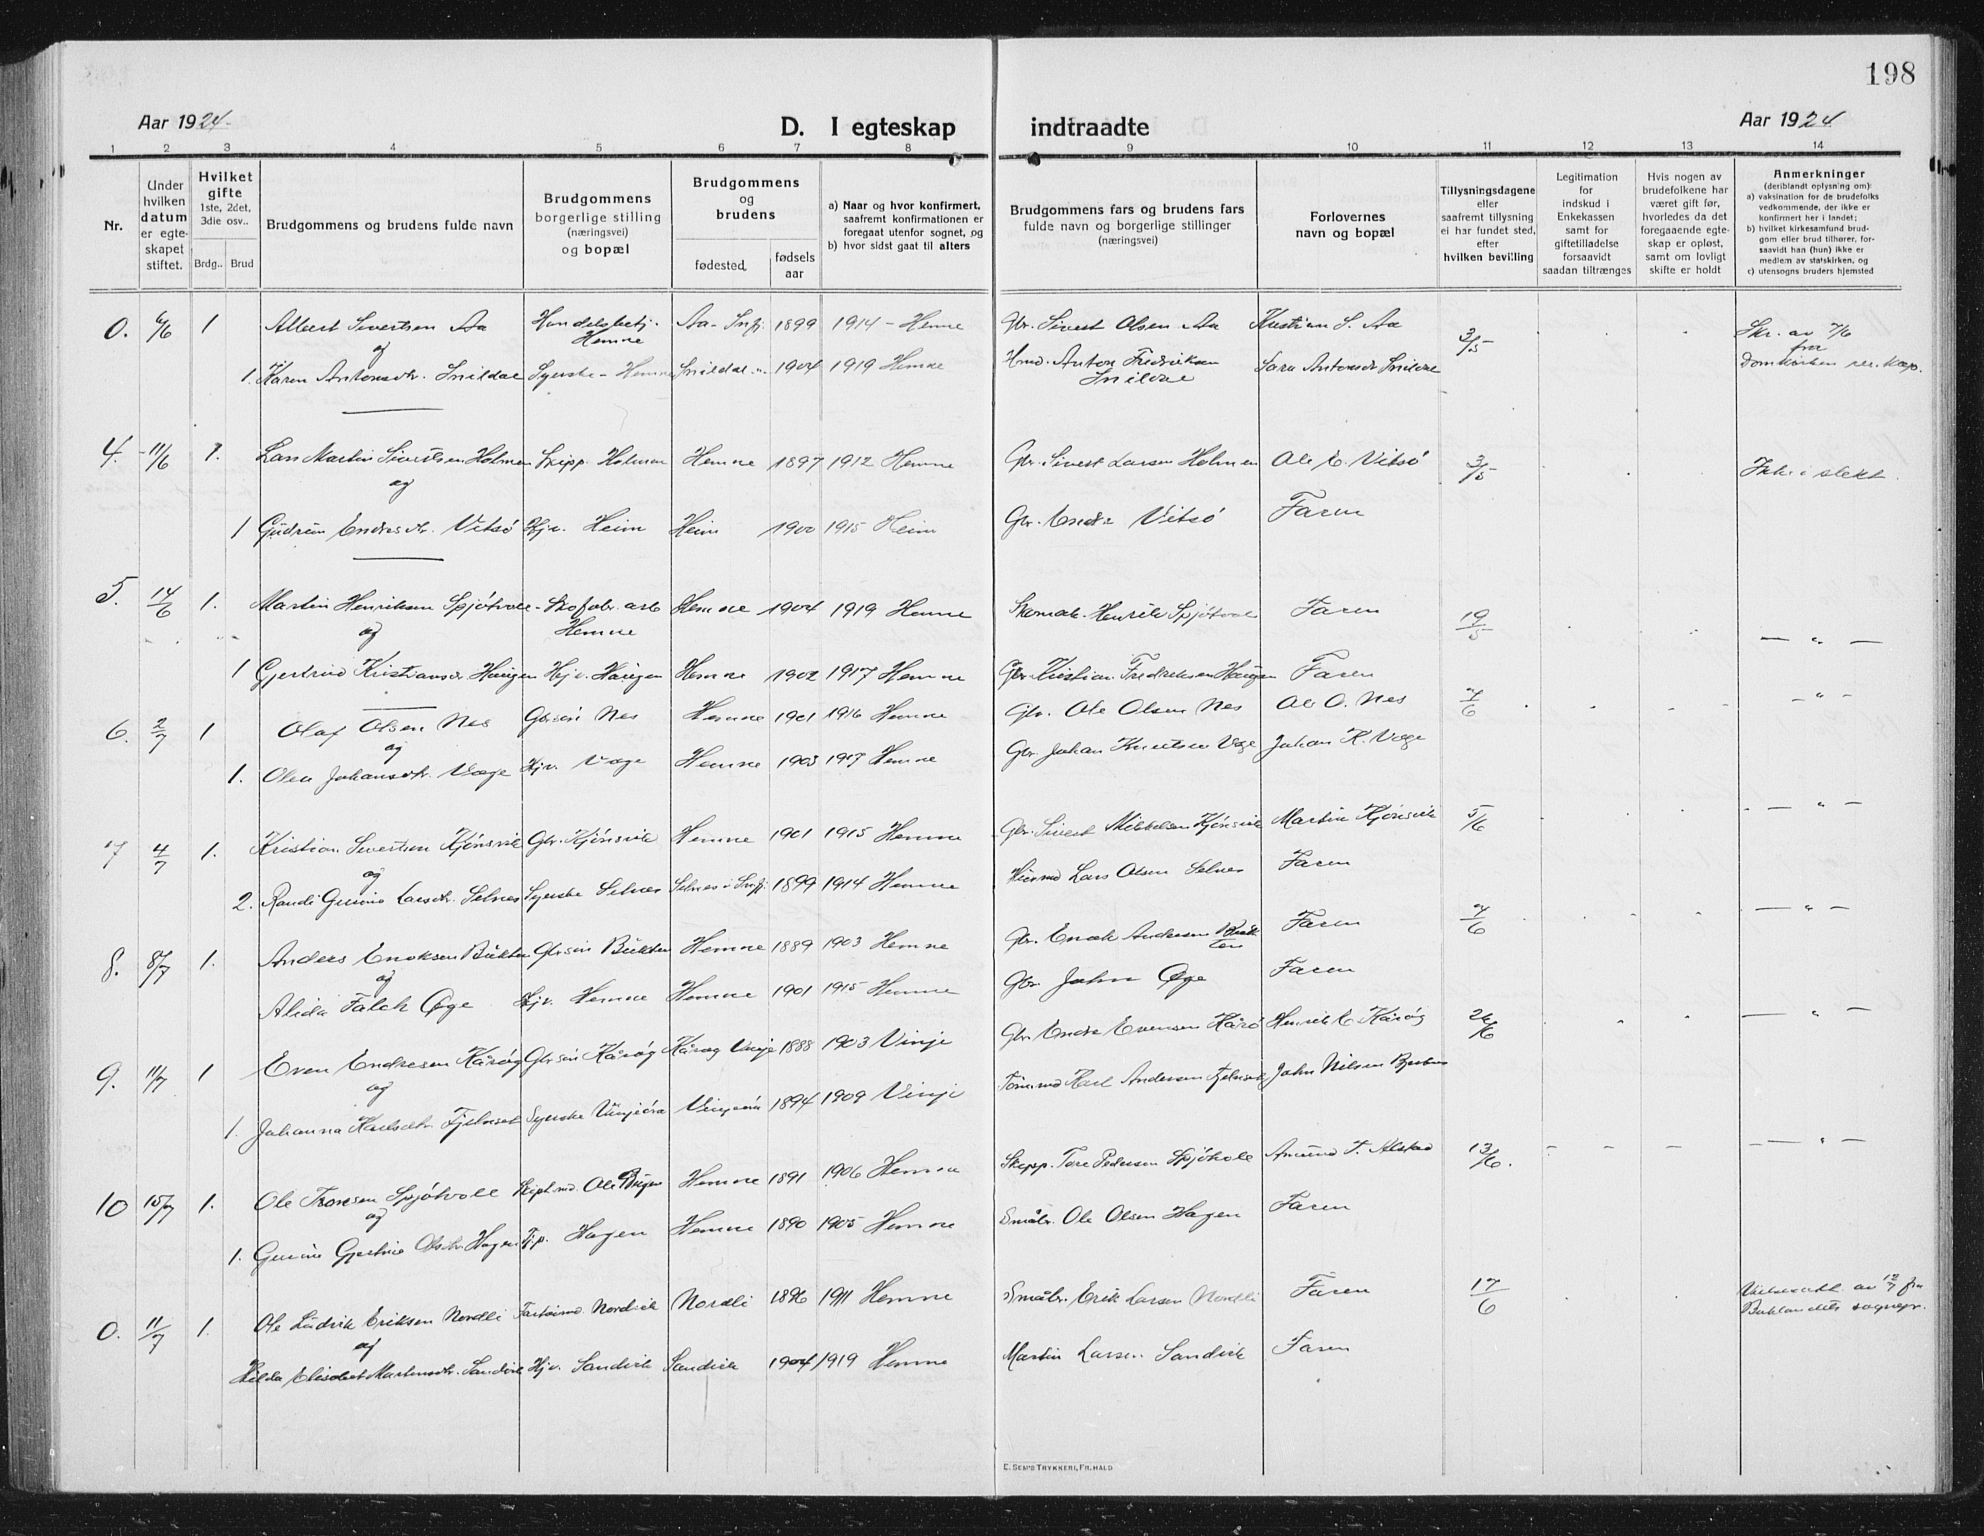 198
Aar 1924.
D. I egteskap
indtraadte
Aar 1924
1 2 3 4 5 6 7 8 9 10 11 12 13 14
Nr.
Under
hvilken
datum
er egte-
skapet
stiftet.
Hvilket
gifte
1ste, 2det,
3die osv..
Brdg.. Brud
Brudgommens og brudens fulde navn
Brudgommens
borgerlige stilling
(næringsvei)
og bopæl
Brudgommens
og
brudens
fødested.
fødsels
aar
a) Naar og hvor konfirmert,
saafremt konfirmationen er
foregaat utenfor sognet, og
b) hvor sidst gaat til alters
Brudgommens fars og brudens fars
fulde navn og borgerlige stillinger
(næringsvei)
Forlovernes
navn og bopæl
Tillysningsdagene
eller
saafremt tillysning
ei har fundet sted,
efter
hvilken bevilling
Legitimation
for
indskud i
Enkekassen
samt for
giftetilladelse
forsaavidt
saadan tiltrænges
Hvis nogen av
brudefolkene har
været gift før,
hvorledes da det
foregaaende egte-
skap er opløst,
samt om lovligt
skifte er holdt
Anmerkninger
(deriblandt oplysning om):
a) vaksination for de brudefolks
vedkommende, der ikke er
konfirmert her i landet;
b) hvilket kirkesamfund brud-
gom eller brud tilhører, for-
saavidt han (hun) ikke er
medlem av statskirken, og
c) utensogns bruders hjemsted
0. 6/6 1 Albert Sivertsen Aa Handelsbetj. Aa - Snfj. 1899 1914 - Hemne Gbr. Sivert Olsen Aa Kristian S. Aa 3/5 Skr. av 7/6
og Hemne fra
1. Karen Antonsdtr. Snildal Syerske - Hemne Snildal 1904 1919 Hemne Hmd. Anton Fredriksen Sara Antonsdr Snildal Domkirken res. kap.
Snildal
4. 11/6 1. Lars Martin Sivertsen Holmen Skipp. Holmen Hemne 1897 1912 Hemne Gbr. Sivert Larsen Holmen Ole E. Vitsø 3/5 Ikke i slekt.
og
1 Gudrun Endresdtr. Vitsø Hjv. Heim Heim 1900 1915 Heim Gbr. Endre Vitsø Faren
5. 14/6 1. Martin Henriksen Spjøtvoll Skofabr. arb Hemne 1904 1919 Hemne Skomak. Henrik Spjøtvol Faren 19/5 — " —
og Hemne
1 Gjertrud Kristiansdr Haugen Hjv. Haugen Hemne 1902 1917 Hemne Gbr. Kristian Fredriksen Haugen Faren
6. 2/7 1 Olaf Olsen Nes Gbrsøn Nes Hemne 1901 1916 Hemne Gbr. Ole Olsen Nes Ole O. Nes /6 — " —
og
1. Olea Johansdtr. Vaage Hjv. Vaage Hemne 1903 1917 Hemne Gbr. Johan Knutsen Vaage Johan K. Vaage
7 4/7 1. Kristian Sivertsen Kjønsvik Gbr. Kjønsvik Hemne 1901 1915 Hemne Gbr. Sivert Mikkelsen Kjønsvik Martin Kjønsvik 5/6 — " —
og
2. Randi Gurine Larsdtr. Selnes Syerske Selnes Selnes i Snfj. 1899 1914 Hemne Lars Olsen Selnes Faren
8. 8/7 1. Anders Enoksen Bukten Gbrsøn Bukten Hemne 1889 1903 Hemne Gbr. Enok Andersen Buk Faren /6 — " —
og ten
Alida Falck Øge Hjv. Hemne Hemne 1901 1915 Hemne Gbr. John Øge Faren
9. 11/7 1 Even Endresen Kårøy Gbrsøn Kårøy Kårøy Vinje 1888 1903 Vinje Gbr. Endre Evensen Kårø Henrik E Kårøy 26/6 — " —
og
1. Johanna Karlsdtr. Fjelnset Syerske Vinjeøra Vinjeøra 1894 1909 Vinje Tømmd Karl Andersen Fjelnset John Nilsen
10 15/7 1. Ole Toresen Spjøtvoll Hemne 1891 1906 Hemne Skipp. Tore Pedersen Spjøtvoll Amund T. Alstad 13/6. — " —
og
1. Gurine Gjertine Olsdtr. Hagen Tjp. Hagen Hemne 1890 1905 Hemne Småbr. Ole Olsen Hagen Faren
0. 11/7 1. Ole Ludvik Eriksen Nordli Nordvik Nordli 1896 1911 Hemne Småbr. Erik Larsen Nordli Faren 17/6 Vielsesatt. av 12/7 fra
og Buklandets sognepr.
Hilda Elisabet Martinsdtr. Sandvik Hjv. Sandvik Sandvik 1904 1919 Hemne Martin Larsen Sandvik Faren
E. SEM'S TRYKKERI, FR.HALD